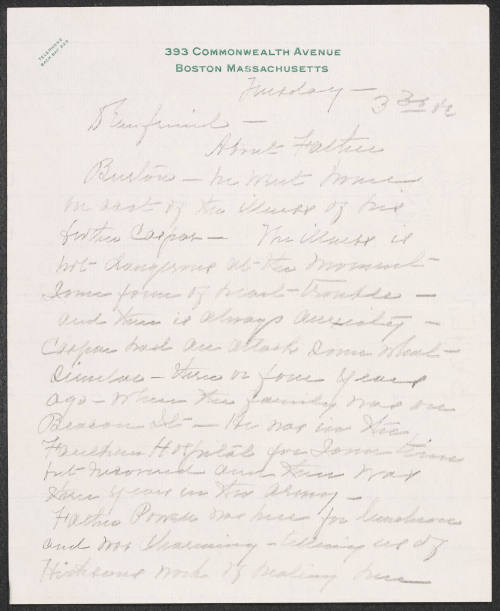 TELEPHONE
BACK BAY
393 COMMONWEALTH AVENUE
BOSTON MASSACHUSETTS
Tuesday —
3 30
—
About Father
Burton — he went home
on act of the illness of his
brother Caspar — The illness is
not dangerous at the moment
Some form of heart-trouble —
and there is always anxiety —
Caspar had an attack some what
similar — three or four years
ago — when the family was on
Beacon St — He was in the
Faulkner Hospital for some time
but recovered and then was
three years in the army —
Father Powell was here for luncheon
and was charming — telling us of
Hickson's work of healing here